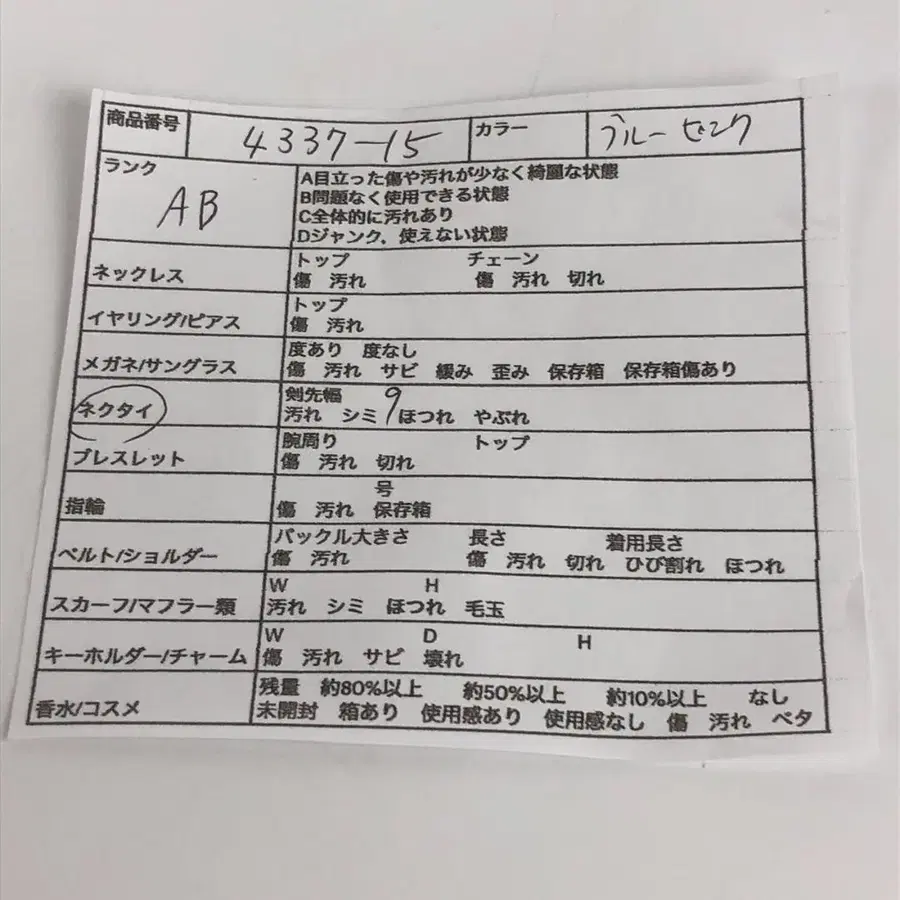 商品番号 4337-15 カラー ブルー ピンク
ランク AB
A目立った傷や汚れが少なく綺麗な状態
B問題なく使用できる状態
C全体的に汚れあり
Dジャンク、使えない状態
ネックレス
トップ チェーン
傷 汚れ 傷 汚れ 切れ
イヤリング/ピアス
トップ
傷 汚れ
メガネ/サングラス
度あり 度なし
傷 汚れ サビ 緩み 歪み 保存箱 保存箱傷あり
ネクタイ
剣先幅 9
汚れ シミ ほつれ やぶれ
ブレスレット
腕周り トップ
傷 汚れ 切れ
指輪
号
傷 汚れ 保存箱
ベルト/ショルダー
バックル大きさ 長さ 着用長さ
傷 汚れ 傷 汚れ 切れ ひび割れ ほつれ
スカーフ/マフラー類
W H
汚れ シミ ほつれ 毛玉
キーホルダー/チャーム
W D H
傷 汚れ サビ 壊れ
香水/コスメ
残量 約80%以上 約50%以上 約10%以上 なし
未開封 箱あり 使用感あり 使用感なし 傷 汚れ ベタ